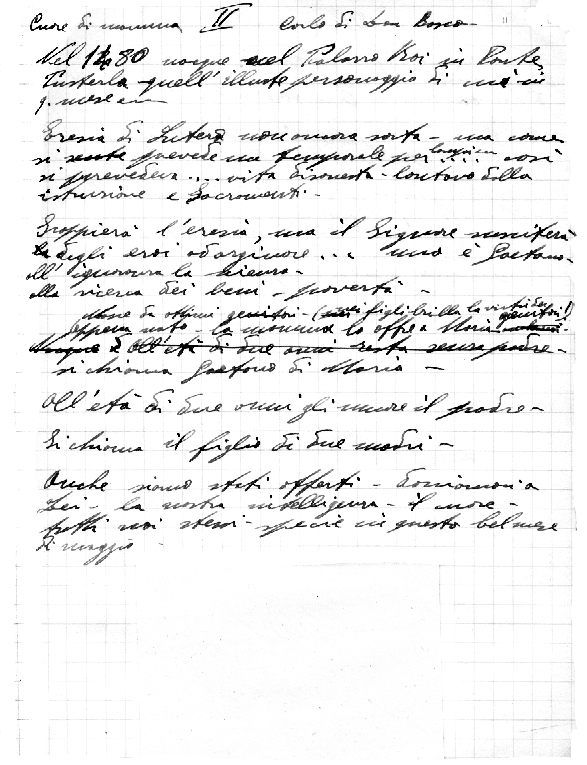 Cuore di mamma II Carlo di Don Bosco -
Nel 1480 nacque nel Palazzo Roi in Ponte
Pusterla quell'illustre personaggio di
Eresia di Lutero non ancora sorta - ma come
si prevede un temporale per così
si prevedeva .... vita disonesta - lontano dalla
istruzione e Sacramenti -
Scoppierà l'eresia, ma il Signore susciterà
degli eroi ad arginare ... uno è Gaetano -
all'ignoranza la scienza -
alla ricerca dei beni - povertà -
Nasce da ottimi genitori - ( figli brilla la virtù dei genitori!)
Appena nato - la mamma lo offre a Maria
All'età di due anni resta senza padre -
si chiama Gaetano di Maria -
All'età di due anni gli muore il padre -
Si chiama il figlio di due madri -
Anche siamo stati offerti - doniamoci a
Lei - la nostra intelligenza - il cuore -
tutti noi stessi - specie in questo bel mese
di maggio -